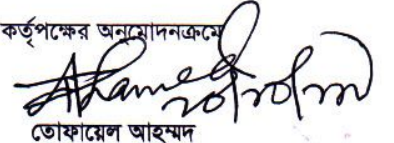 কর্তৃপক্ষের অনুমোদনক্রমে
তোফায়েল আহম্মদ